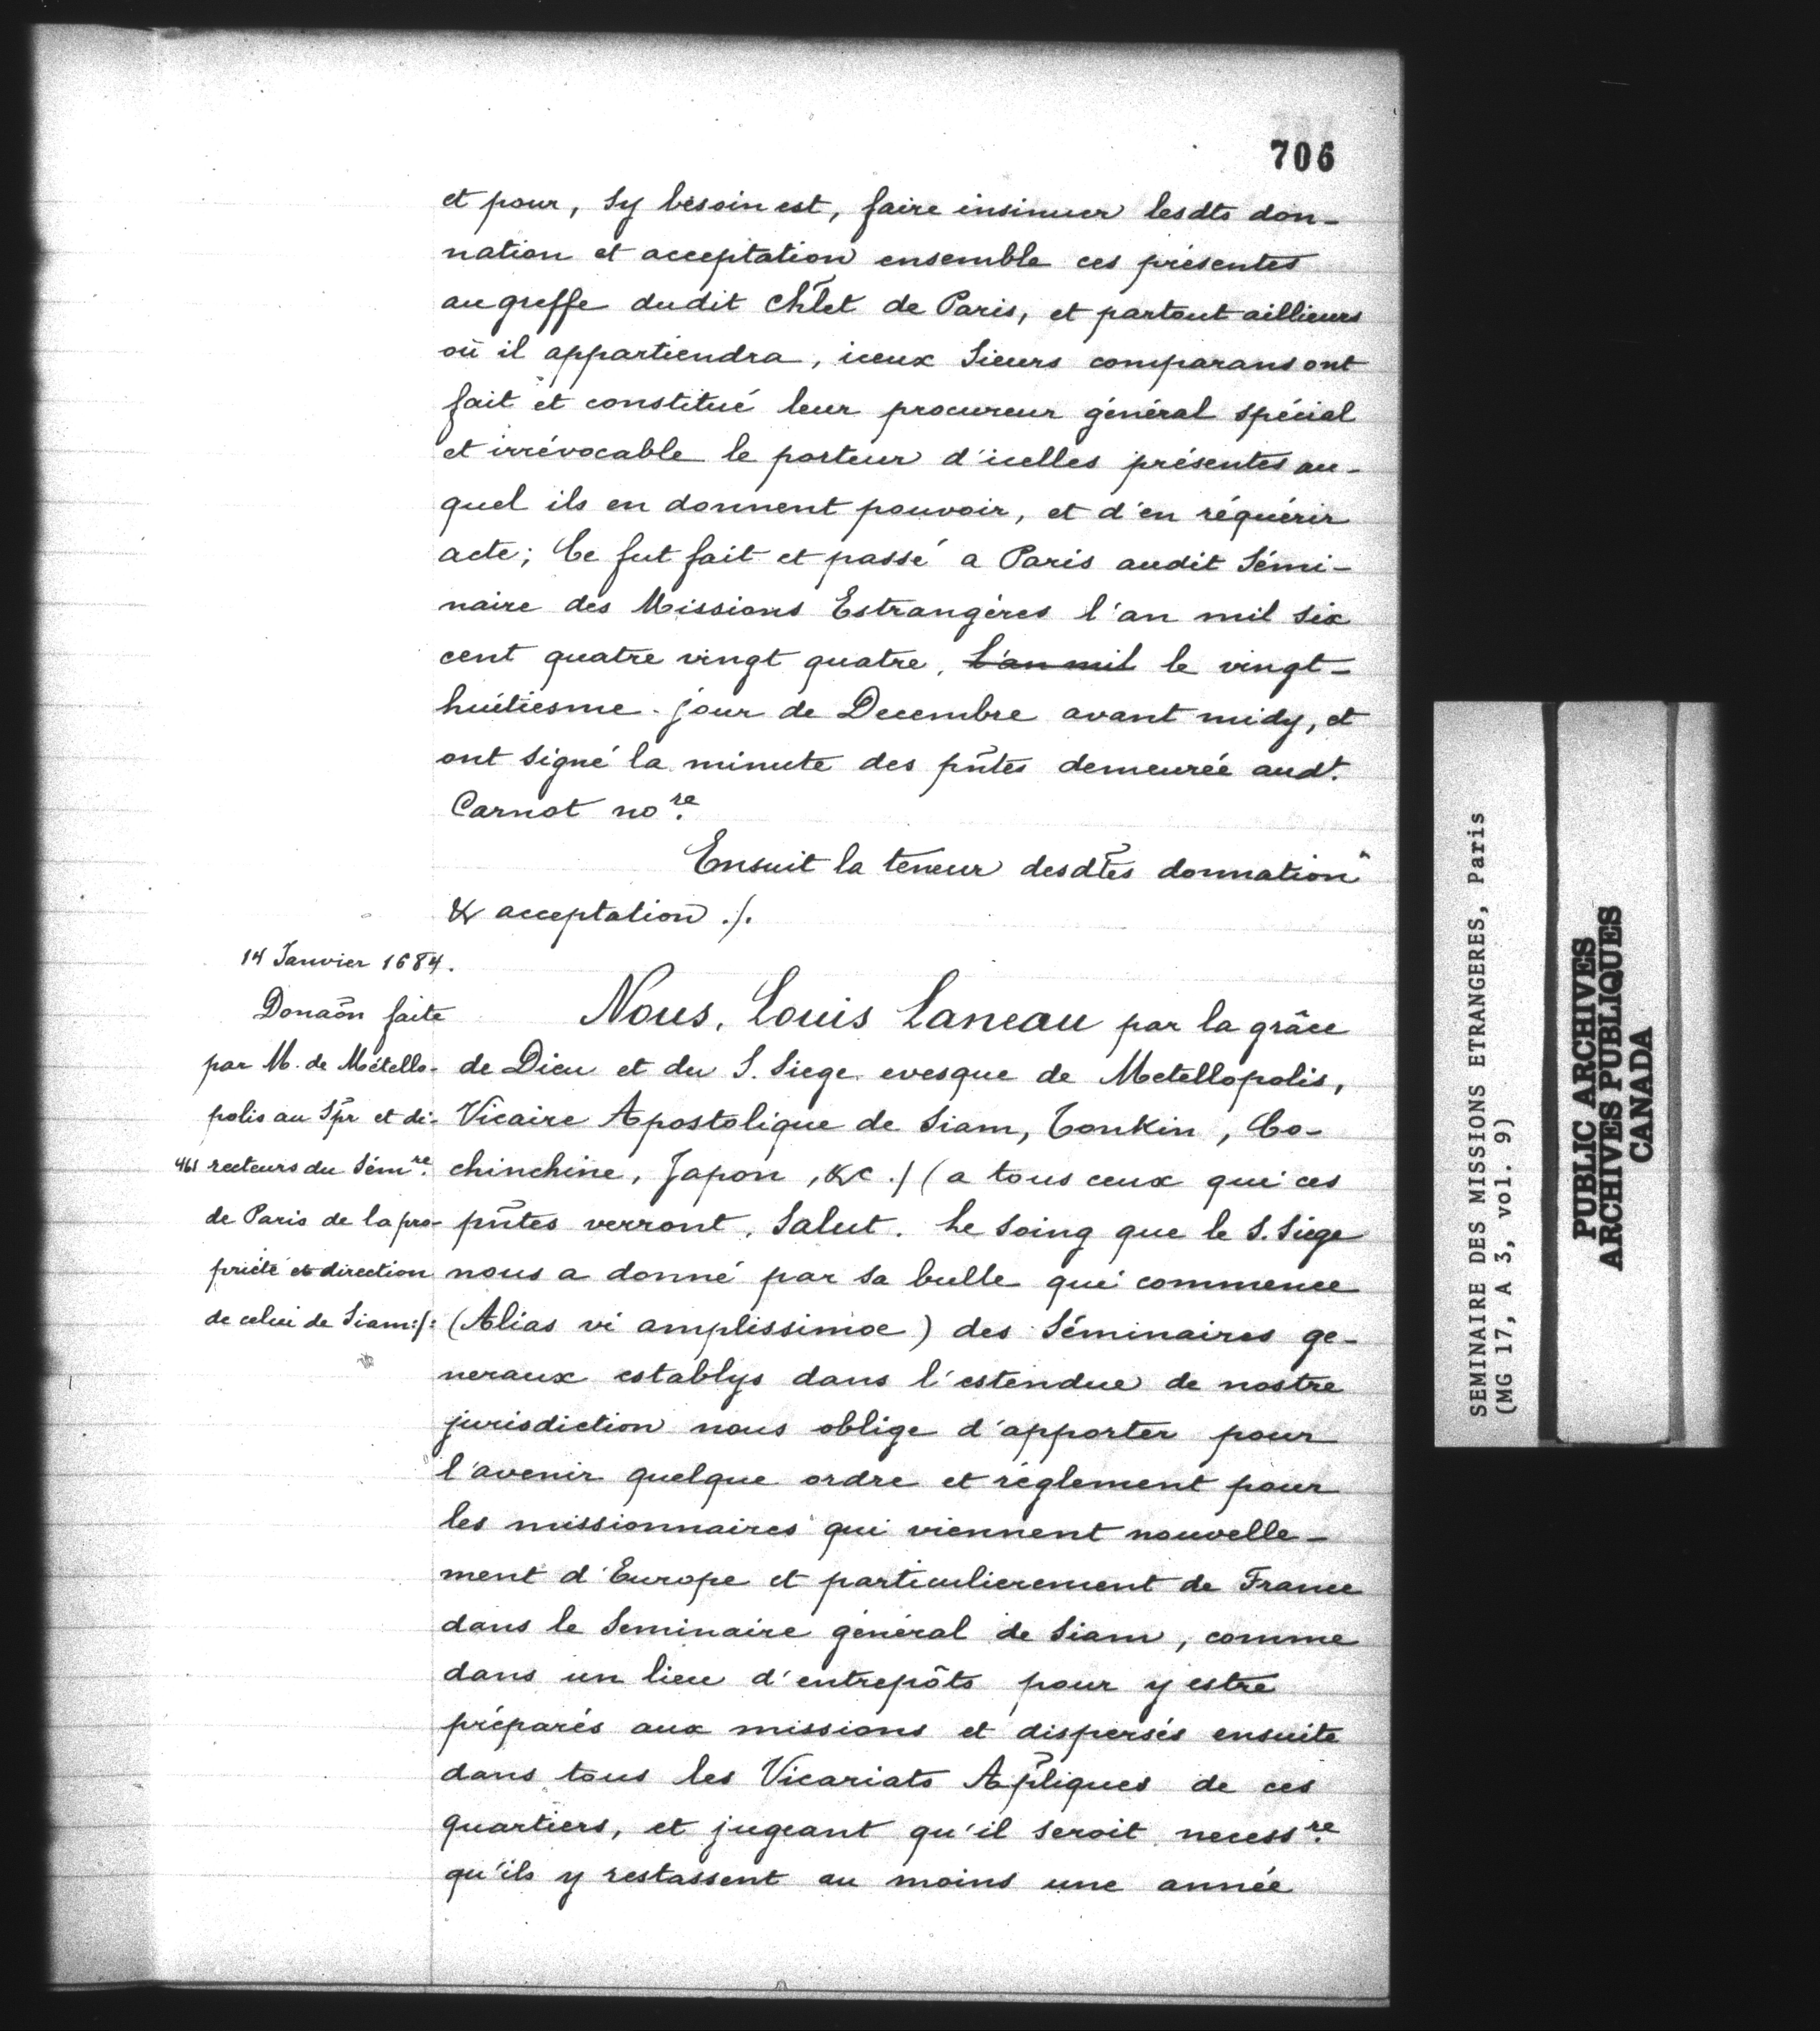 706
et pour, sy besoin est, faire insinuer lesdts don-
nation et acceptation ensemble ces présentes
au greffe dudit Chlet de Paris, et partout aillieurs
où il appartiendra, iceux Sieurs comparans ont
fait et constitué leur procureur général spécial
et irrévocable le porteur d'icelles présentes au-
quel ils en donnent pouvoir, et d'en réquérir
acte; Ce fut fait et passé a Paris audit Sémi-
naire des Missions Estrangères l'an mil six
cent quatre vingt quatre, l'an mil le vingt-
huitiesme jour de Decembre avant midy, et
ont signé la minute des pñtes demeurée audt.
Carnot no.re
Ensuit la teneur desdtes donnation
& acceptation ./.
14 Janvier 1684.
Donaõn faite
par M. de Métello-
polis au Spr et di-
461 recteurs du Sém.re
de Paris de la pro-
priété et direction
de celui de Siam:/:
Nous, Louis Laneau par la grâce
de Dieu et du S. Siege evesque de Metellopolis,
Vicaire Apostolique de Siam, Tonkin, Co-
chinchine, Japon, &c ./ (a tous ceux qui ces
pñtes verront, Salut. Le soing que le S. Siege
nous a donné par sa bulle qui commence
(Alias vi amplissimoe) des Séminaires ge-
neraux establys dans l'estendue de nostre
jurisdiction nous oblige d'apporter pour
l'avenir quelque ordre et réglement pour
les missionnaires qui viennent nouvelle-
ment d'Europe et particulierement de France
dans le Seminaire général de Siam, comme
dans un lieu d'entrepôts pour y estre
préparés aux missions et dispersés ensuite
dans tous les Vicariats Apliques de ces
quartiers, et jugeant qu'il seroit necess.re
qu'ils y restassent au moins une année
SEMINAIRE DES MISSIONS ETRANGERES, Paris
(MG 17, A 3, vol. 9)
PUBLIC ARCHIVES
ARCHIVES PUBLIQUES
CANADA